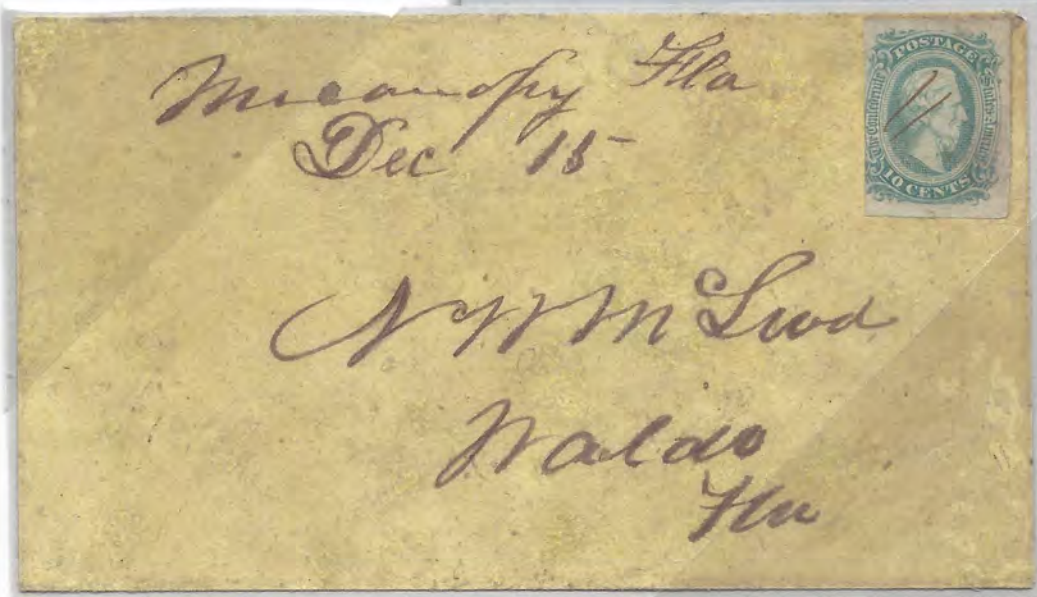 Micanopy Fla
Dec 15
POSTAGE
The Confederate States of America
10 CENTS
N W McLeod
Waldo
Fla